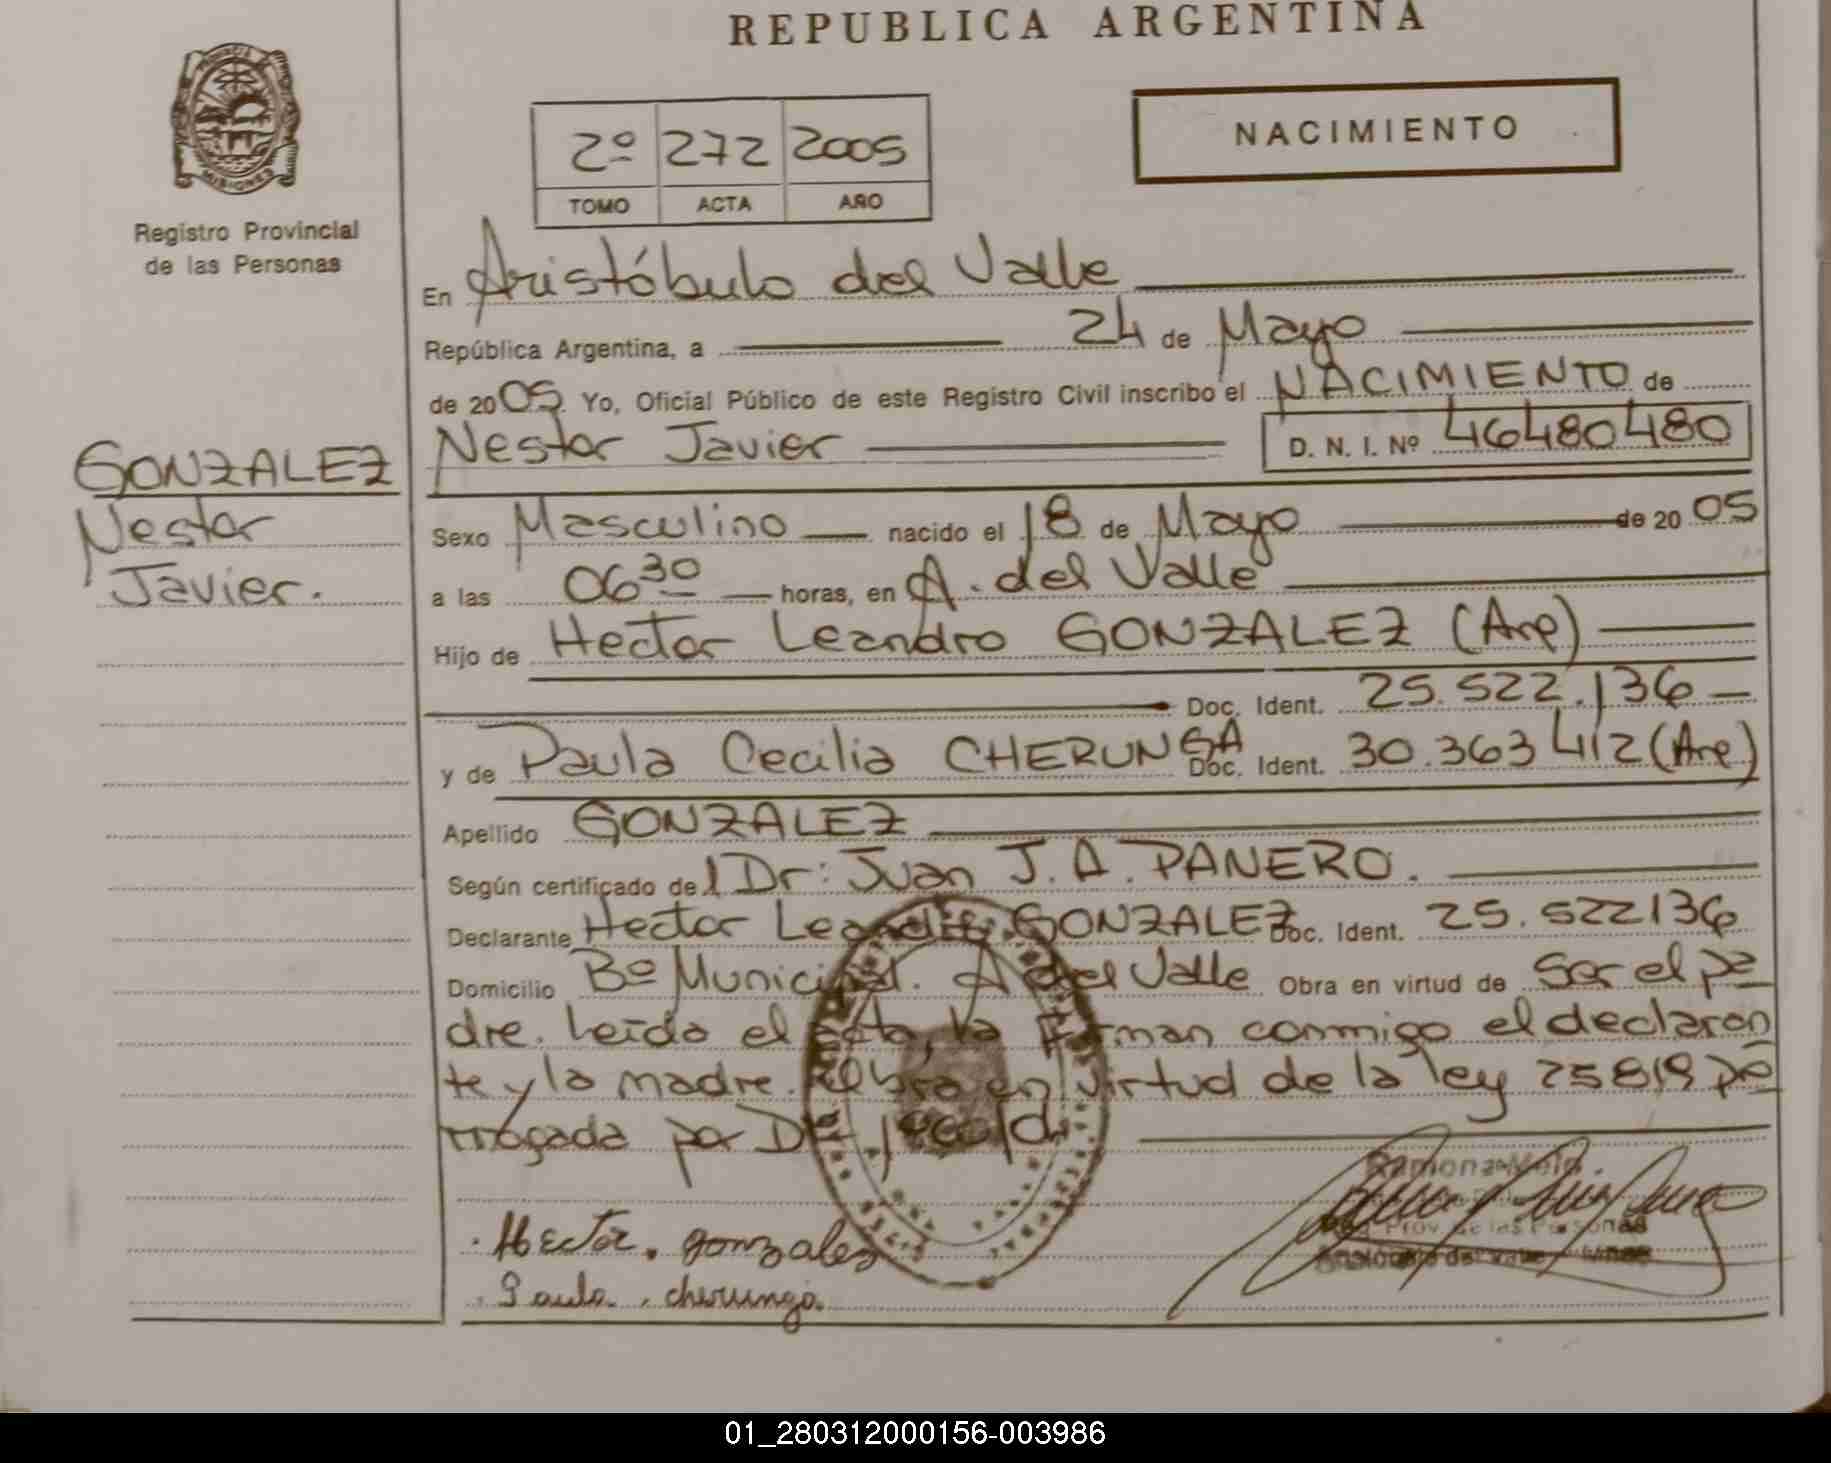 REPUBLICA ARGENTINA
PROVINCIA
MISIONES
Registro Provincial
de las Personas
2º 272 2005
TOMO ACTA AÑO
NACIMIENTO
En Aristóbulo del Valle
República Argentina, a 24 de Mayo
de 2005. Yo, Oficial Público de este Registro Civil inscribo el NACIMIENTO de
Nestor Javier D. N. I. Nº 46480480
GONZALEZ
Nestor
Javier.
Sexo Masculino nacido el 18 de Mayo de 2005
a las 06 30 horas, en A. del Valle
Hijo de Hector Leandro GONZALEZ (Arg)
Doc. Ident. 25.522.136
y de Paula Cecilia CHERUNGA Doc. Ident. 30.363 412 (Arg)
Apellido GONZALEZ
Según certificado del Dr: Juan J. A. PANERO.
Declarante Hector Leandro GONZALEZ Doc. Ident. 25.522136
Domicilio Bº Municipal. A del Valle Obra en virtud de Ser el pa
dre. Leída el acta, la firman conmigo el declaran
te y la madre. en virtud de la ley 25819
rrogada por
Hector. gonzalez
Paula. cherunga.
Ramona
Prov de las Personas
01_280312000156-003986